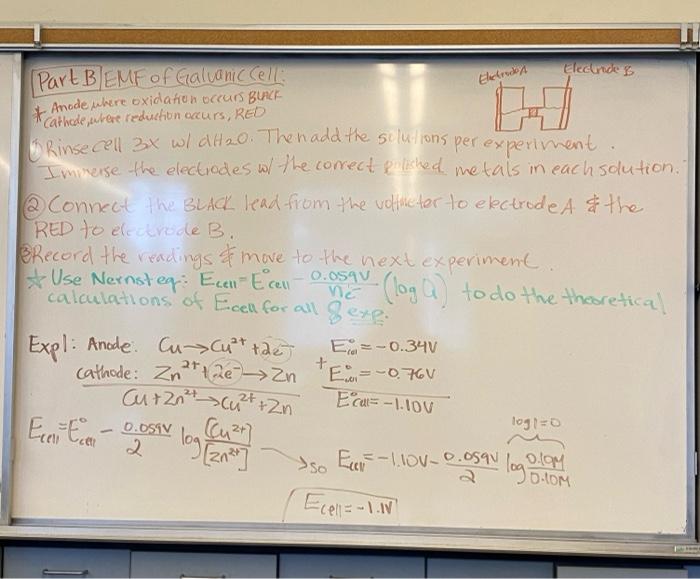 Part B EMF of Galvanic Cell:
* Anode, where oxidation occurs BLACK
Cathode, where reduction occurs, RED
Electrode A
Electrode B
① Rinse cell 3x w/ dH2O. Then add the solutions per experiment.
Immerse the electrodes w/ the correct polished metals in each solution.
② Connect the BLACK lead from the voltmeter to electrode A & the
RED to electrode B.
③ Record the readings & move to the next experiment.
☆ Use Nernst eq: Ecell = E°cell - 0.059V/ne⁻ (log Q) to do the theoretical
calculations of Ecell for all 8 exp.
Exp 1: Anode: Cu → Cu²⁺ + 2e⁻ E°cell = -0.34V
Cathode: Zn²⁺ + 2e⁻ → Zn + E°cell = -0.76V
Cu + Zn²⁺ → Cu²⁺ + Zn E°cell = -1.10V
Ecell = E°cell - 0.059V/2 log [Cu²⁺]/[Zn²⁺]
log 1 = 0
→ so Ecell = -1.10V - 0.059V/2 log 0.10M/0.10M
Ecell = -1.1V